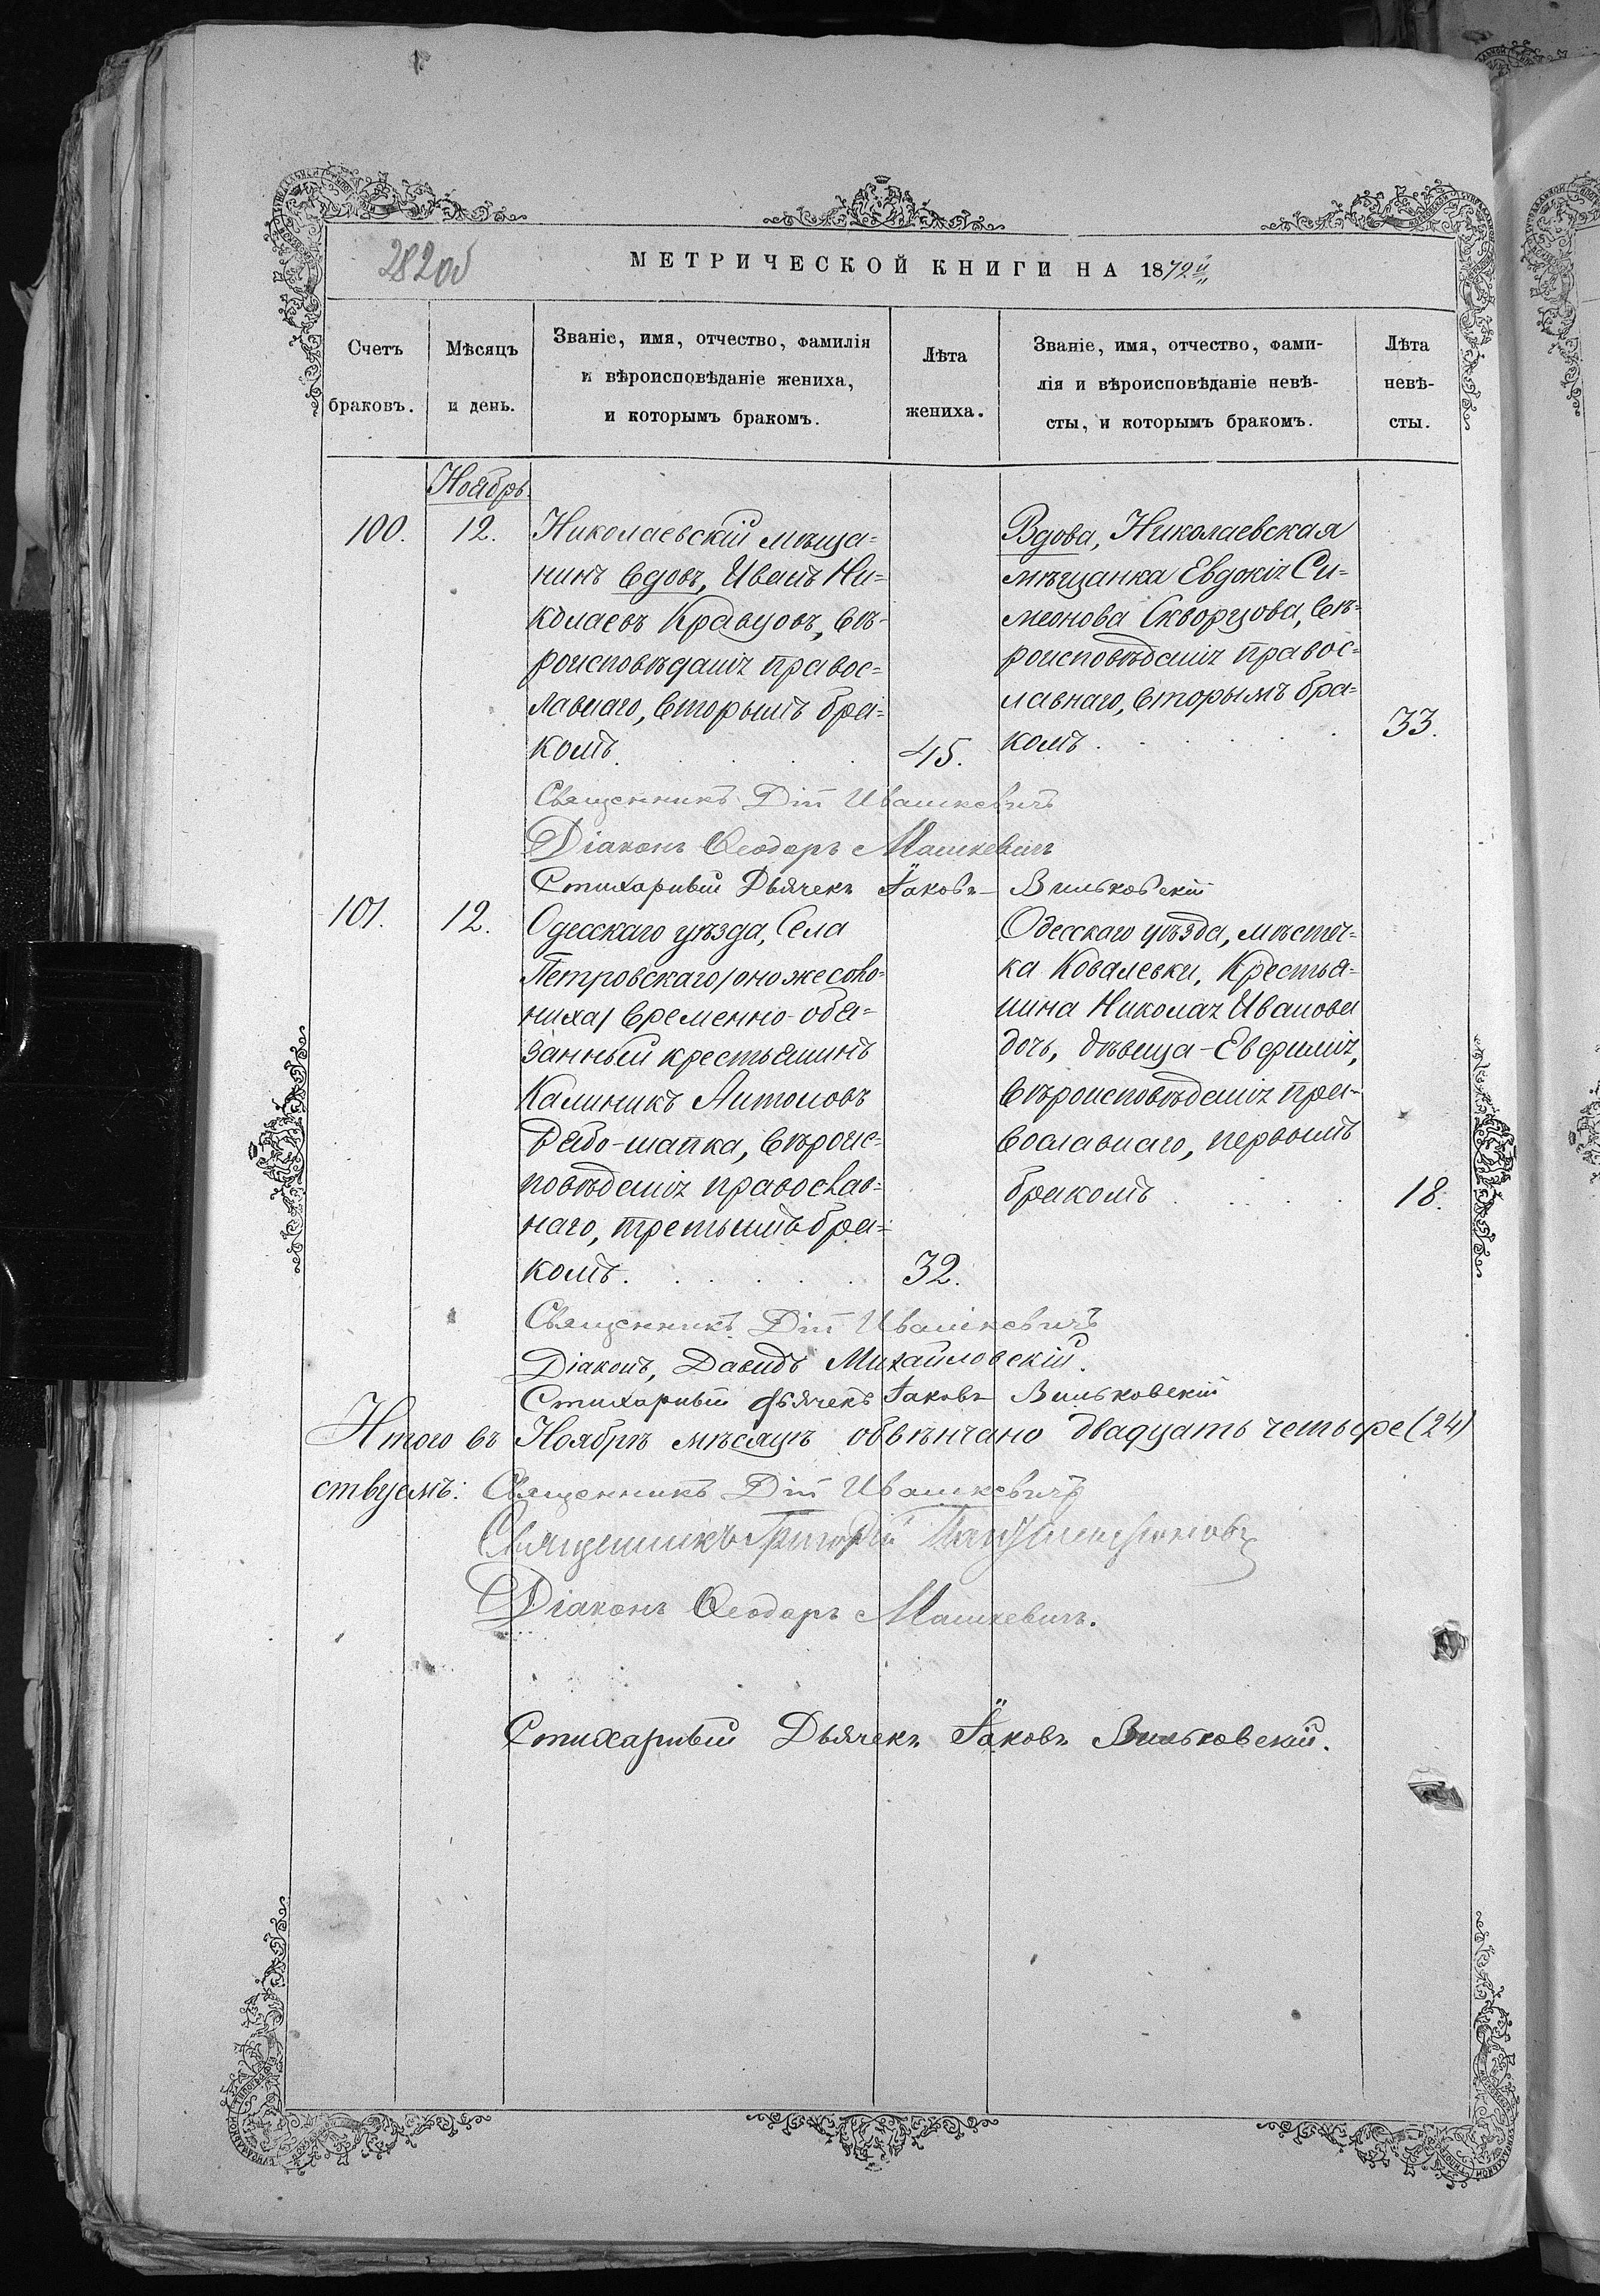 282 об
МЕТРИЧЕСКОЙ КНИГИ НА 1872й
Счетъ браковъ.
Мѣсяцъ и день.
Званіе, имя, отчество, фамилія
и вѣроисповѣданіе жениха,
и которымъ бракомъ.
Лѣта жениха.
Званіе, имя, отчество, фами-
лія и вѣроисповѣданіе невѣ-
сты, и которымъ бракомъ.
Лѣта невѣ-
сты.
Ноябрь
100.
12.
Николаевскій мѣща=
нинъ вдовъ, Иванъ Ни=
колаевъ Кравцовъ, вѣ-
роисповѣданія правос=
лавнаго, вторымъ бра=
комъ.
45.
Вдова, Николаевская
мѣщанка Евдокія Си=
меонова Скворцова, вѣ=
роисповѣданія правос=
лавнаго, вторымъ бра=
комъ
33.
Священникъ Дій Ивашкевичъ
Діаконъ Ѳеодоръ Машкевичъ
Стихарный Дьячекъ Іаковъ Вильковскій
101.
12.
Одесскаго уѣзда, Села
Петровскаго /оно же Сово=
ниха/ временно-обя=
занный крестьянинъ
Калиникъ Антоновъ
Рябо-шапка, вѣроис=
повѣданія православ=
наго, третьимъ бра=
комъ.
32.
Одесскаго уѣзда, мѣстеч=
ка Ковалевки, Крестья=
нина Николая Иванова
дочь, дѣвица - Евфимія,
вѣроисповѣданія пра=
вославнаго, первымъ
бракомъ
18.
Священникъ Дій Ивашкевичъ
Діаконъ, Давидъ Михайловскій.
Стихарный дьячекъ Іаковъ Вильковскій
Итого въ Ноябрѣ мѣсяцѣ обвѣнчано двадцать четыре (24)
ствуемъ: Священникъ Дій Ивашкевичъ
Священникъ Григорій
Діаконъ Ѳеодоръ Машкевичъ.
Стихарный Дьячекъ Іаковъ Вильковскій.